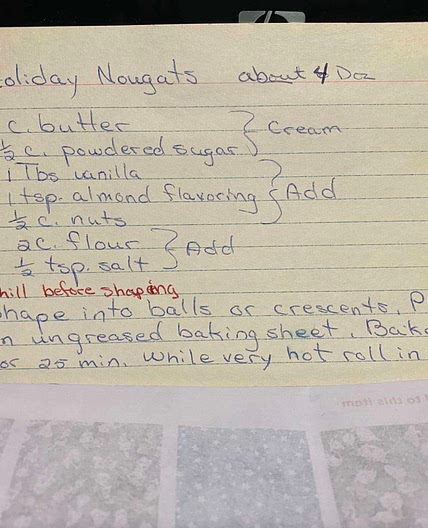 oliday Nougats about 4 Doz
c. butter
½ c. powdered sugar } Cream
1 Tbs vanilla
1 tsp. almond flavoring } Add
½ c. nuts
2c. flour
½ tsp. salt } Add
hill before shaping
hape into balls or crescents. P
n ungreased baking sheet. Bak
or 25 min. While very hot roll in
to this item